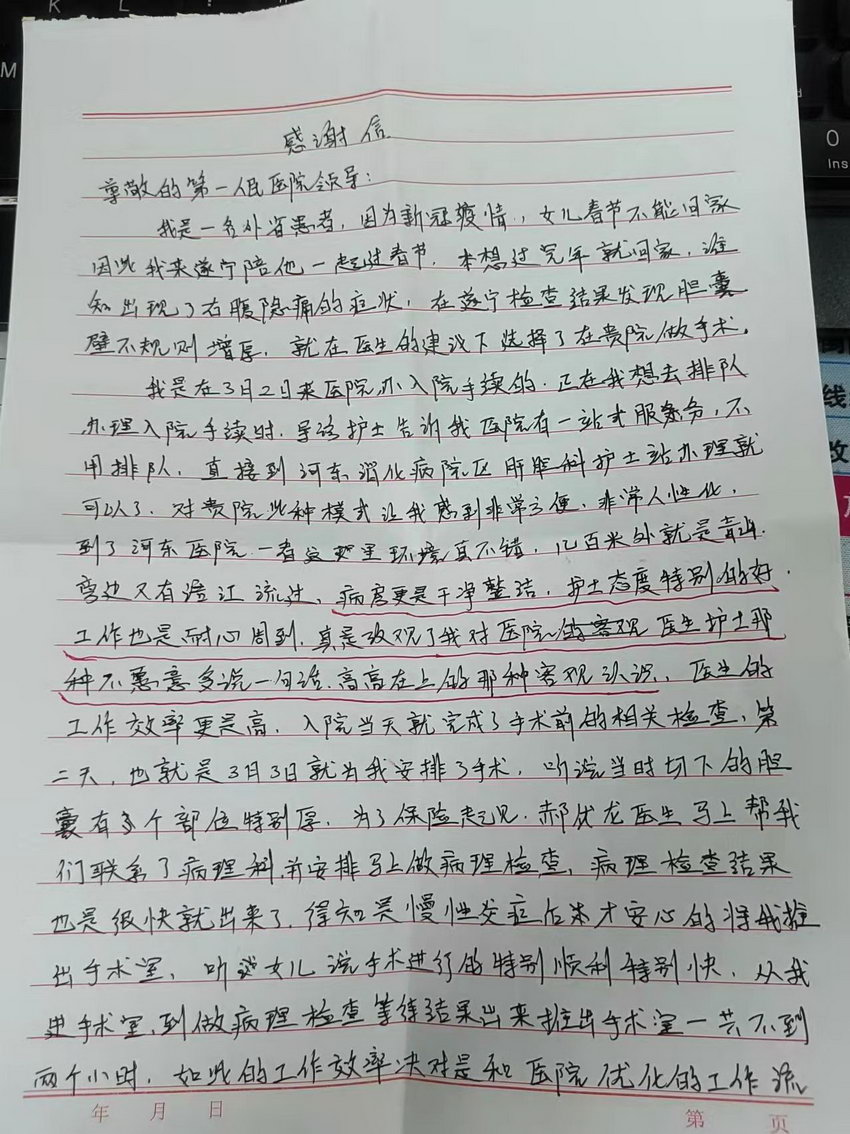 感谢信
尊敬的第一人民医院领导：
我是一名外省患者，因为新冠疫情，女儿春节不能回家
因此我来遂宁陪他一起过春节，本想过完年就回家，谁
知出现了右腹隐痛的症状，在遂宁检查结果发现胆囊
壁不规则增厚，就在医生的建议下选择了在贵院做手术。
我是在3月2日来医院办入院手续的，正在我想去排队
办理入院手续时，导诊护士告诉我医院有一站式服务，不
用排队，直接到河东消化病院区肝胆科护士站办理就
可以了，对贵院此种模式让我感到非常方便，非常人性化，
到了河东医院一看这里环境真不错，几百米外就是青山
旁边又有涪江流过，病房更是干净整洁，护士态度特别的好，
工作也是耐心周到，真是改观了我对医院的客观医生护士那
种不愿意多说一句话，高高在上的那种客观认识，医生的
工作效率更是高，入院当天就完成了手术前的相关检查，第
二天，也就是3月3日就为我安排了手术，听说当时切下的胆
囊有多个部位特别厚，为了保险起见，郝伏龙医生马上帮我
们联系了病理科，并安排马上做病理检查，病理检查结果
也是很快就出来了，得知是慢性炎症后本才安心的将我推
出手术室，听女儿说手术进行的特别顺利特别快，从我
进手术室，到做病理检查等待结果出来推出手术室一共不到
两个小时，如此的工作效率决对是和医院优化的工作流
年 月 日
第 页
K L
M
0
Ins
线
改